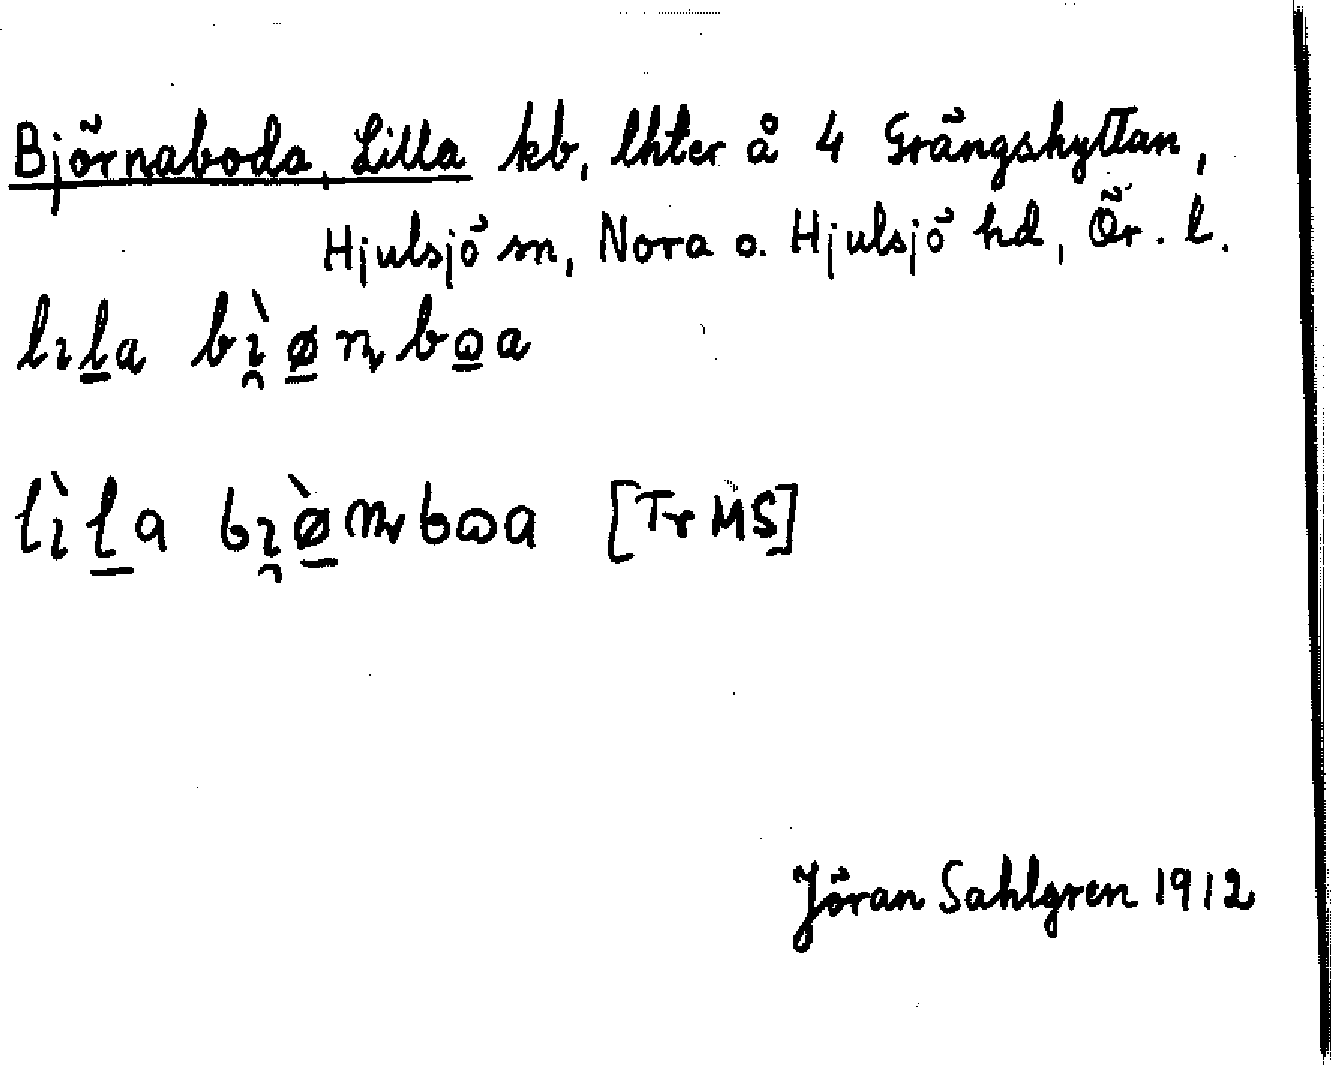 Björnaboda, Lilla kb, lhter å 4 Grängshyttan,
Hjulsjö sn, Nora o. Hjulsjö hd, Ör. l.
lıl̲a bı̯̀ø̲ɳbɷ̲a
lı̀l̲a bı̯ø̲̀ɳbɷa [Tr MS]
Jöran Sahlgren 1912